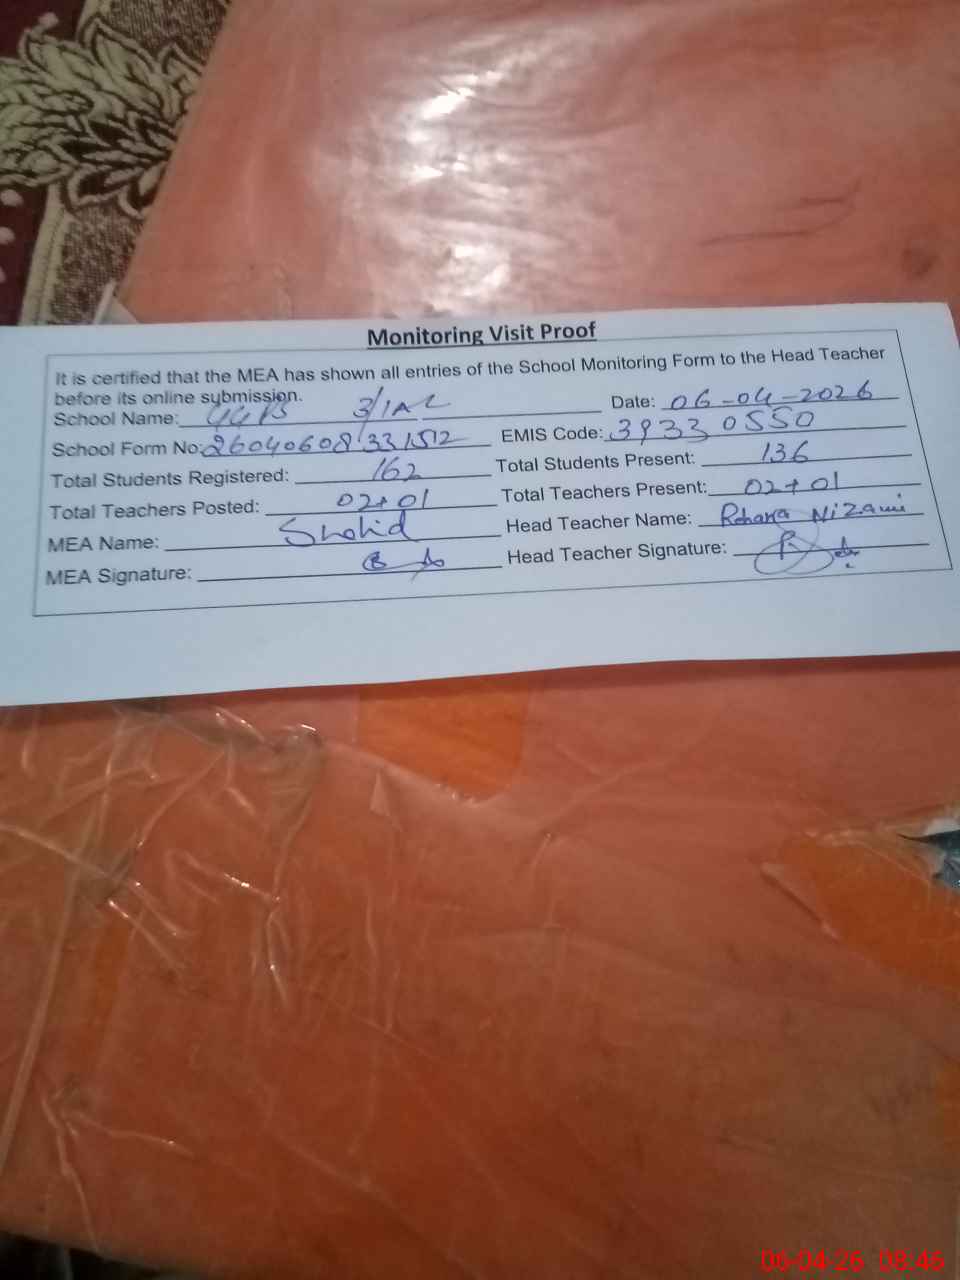 Monitoring Visit Proof
It is certified that the MEA has shown all entries of the School Monitoring Form to the Head Teacher
before its online submission.
School Name: 3/1AL Date: 06-04-2026
School Form No: 26040608331512 EMIS Code: 39330550
Total Students Registered: 162 Total Students Present: 136
Total Teachers Posted: 02+01 Total Teachers Present: 02+01
MEA Name: Shahid Head Teacher Name: Rehana Nizami
MEA Signature: Head Teacher Signature:
06-04-26 08:46